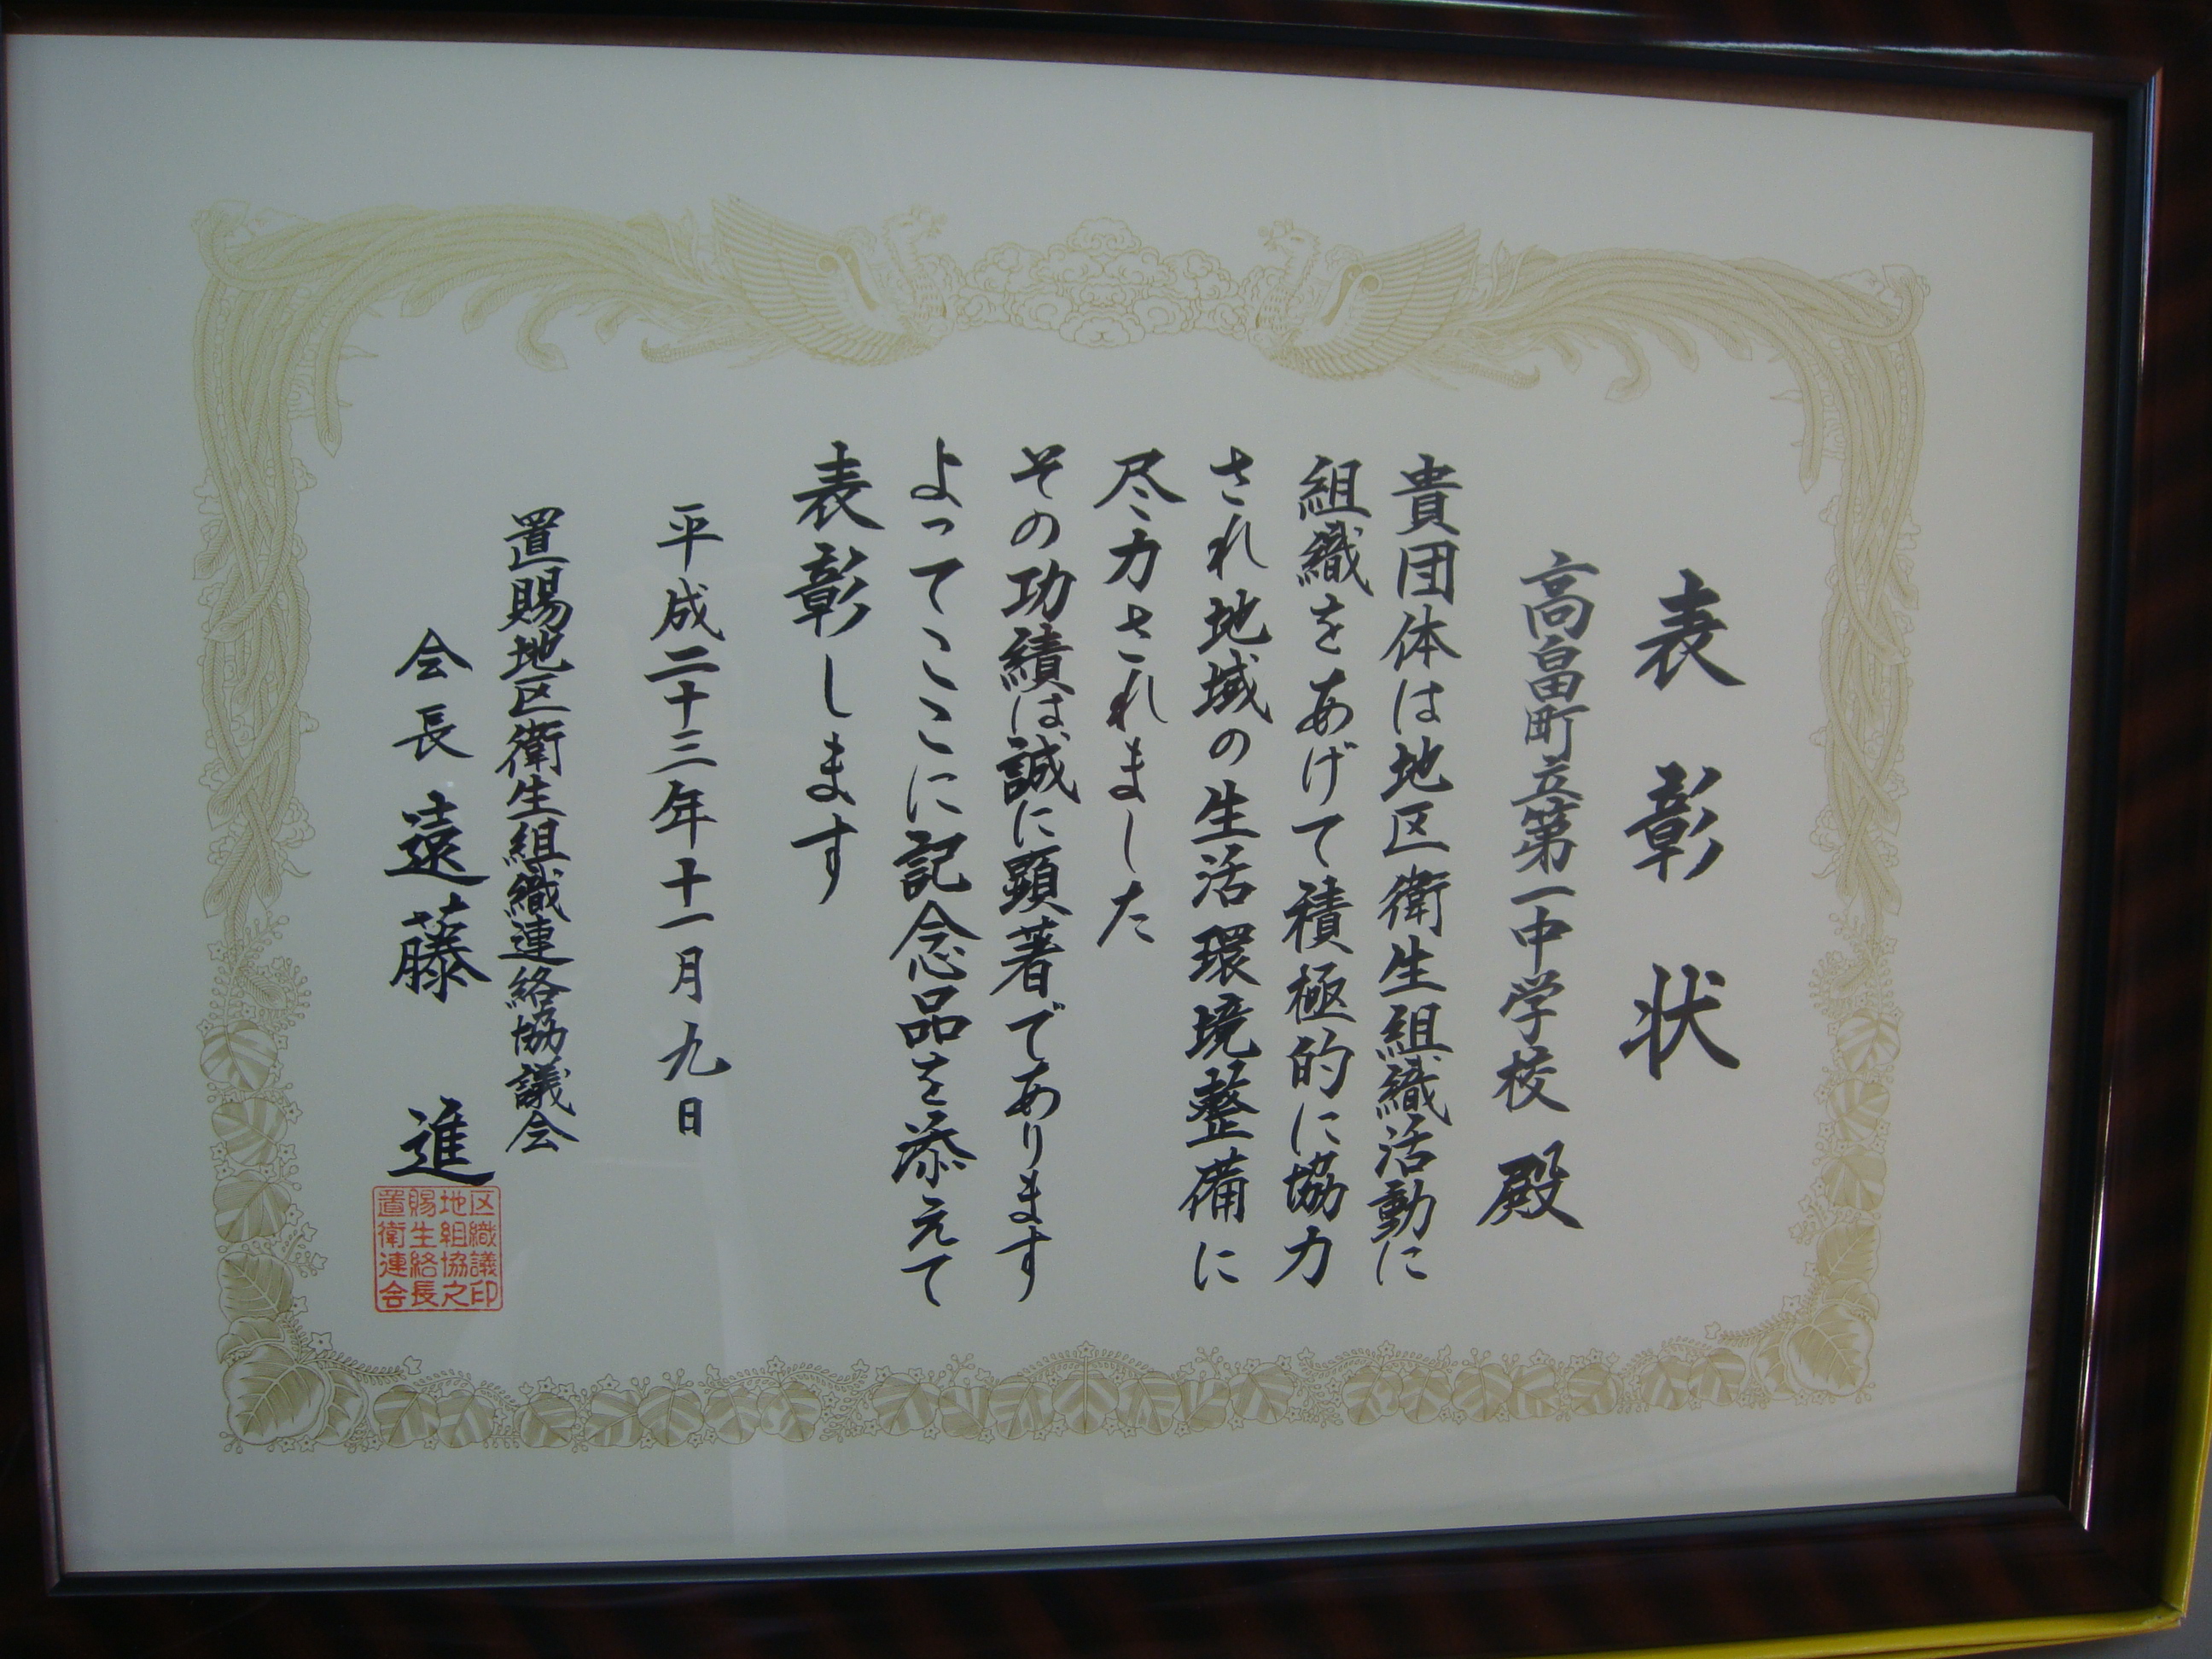 表彰状
高畠町立第一中学校 殿
貴団体は地区衛生組織活動に
組織をあげて積極的に協力
され地域の生活環境整備に
尽力されました
その功績は誠に顕著であります
よってここに記念品を添えて
表彰します
平成二十三年十一月九日
置賜地区衛生組織連絡協議会
会長 遠藤 進
置賜地区
衛生組織
連絡協議
会長之印